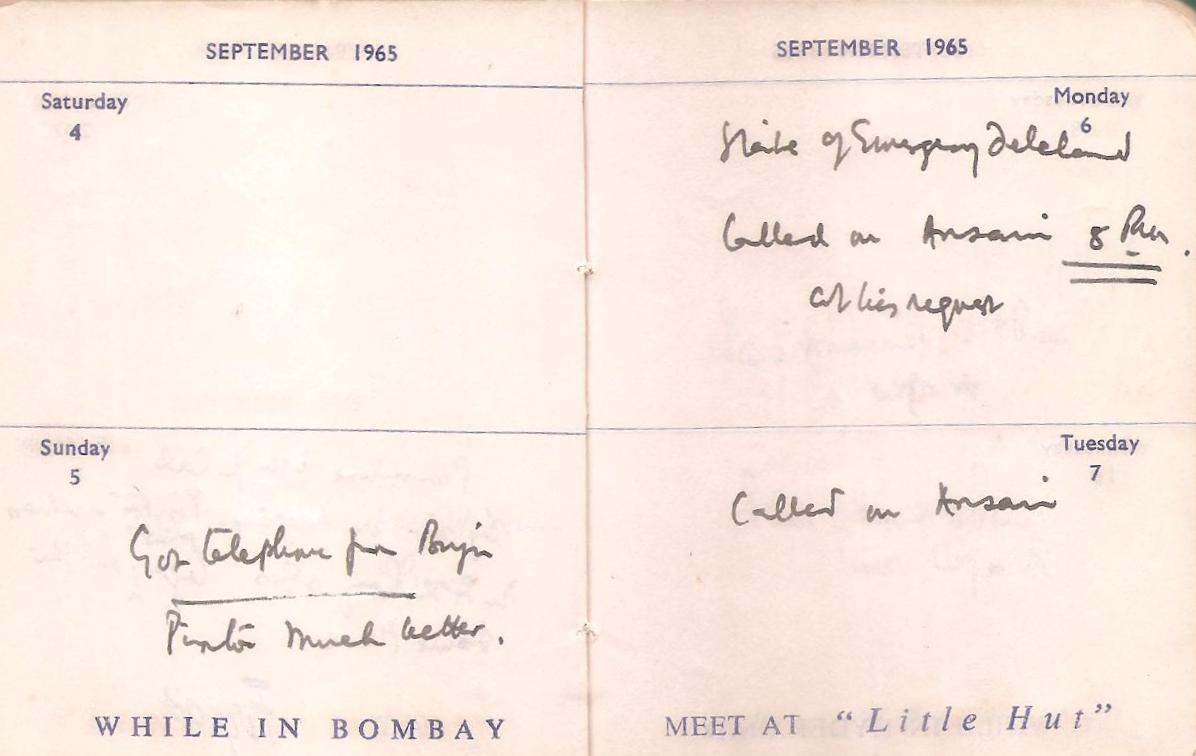 SEPTEMBER 1965
Saturday
4
Sunday
5
Got telephone from
much better.
WHILE IN BOMBAY
SEPTEMBER 1965
Monday
6
State of Emergency Declared
Called on Ansari 8 Pm.
at his request
Tuesday
7
Called on Ansari
MEET AT "Litle Hut"